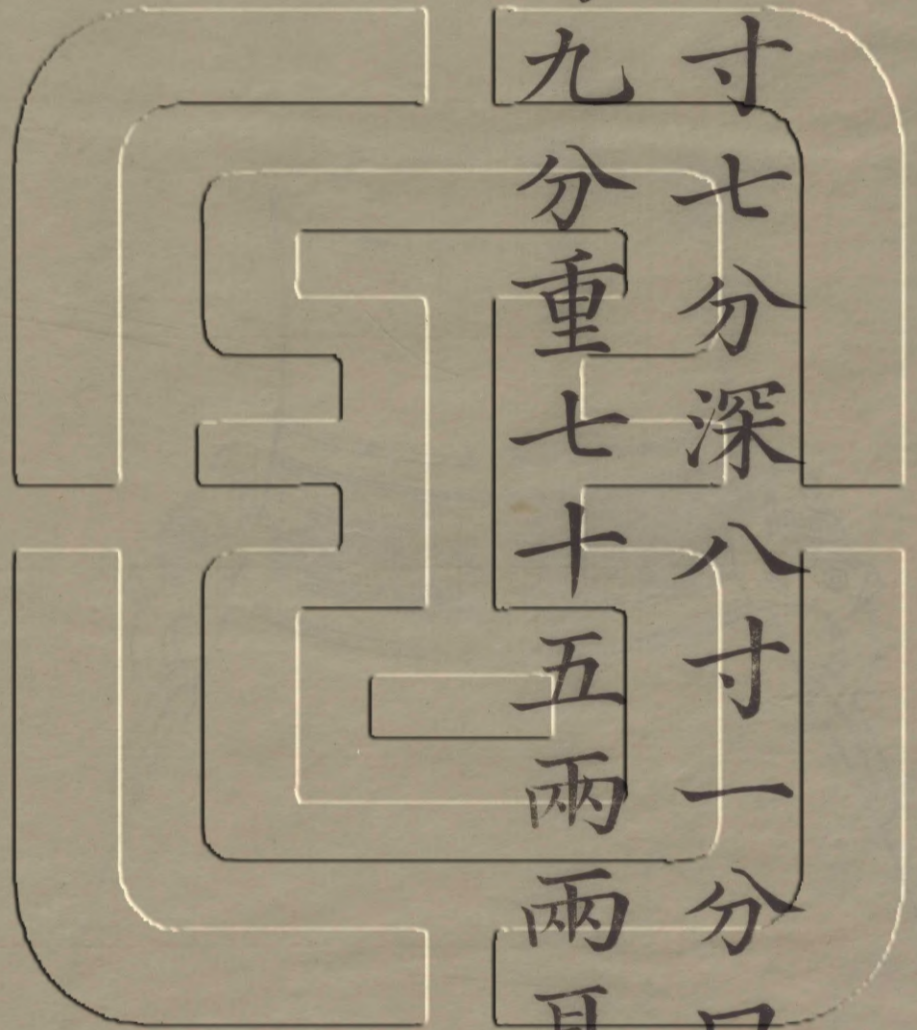 寸七分深八寸一分口
九分重七十五兩兩耳